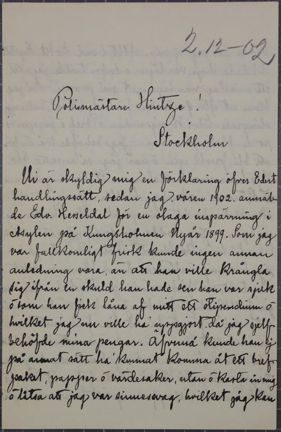 2.12-02
Polismästare Hintze!
Stockholm
Ni är skyldig mig en förklaring öfver Edert
handlingssätt, sedan jag våren 1902. anmäl-
de Edv. Hesseldal för en olaga inspärrning i
asylen på Kungsholmen Nyår 1899. Som jag
var fullkomligt frisk kunde ingen annan
anledning vara, än att han ville krångla
sig ifrån en skuld han hade sen han var sjuk
o som han fick låna af mitt ett stipendium o
hvilket jag nu ville ha uppgjort då jag sjelf
behöfde mina pengar. Afvenså kunde han ej
på annat sätt ha kunnat komma åt ett bref-
paket, papper o värdesaker, utan o kasta in mig
o låtsa att jag var sinnessvag, hvilket jag kan